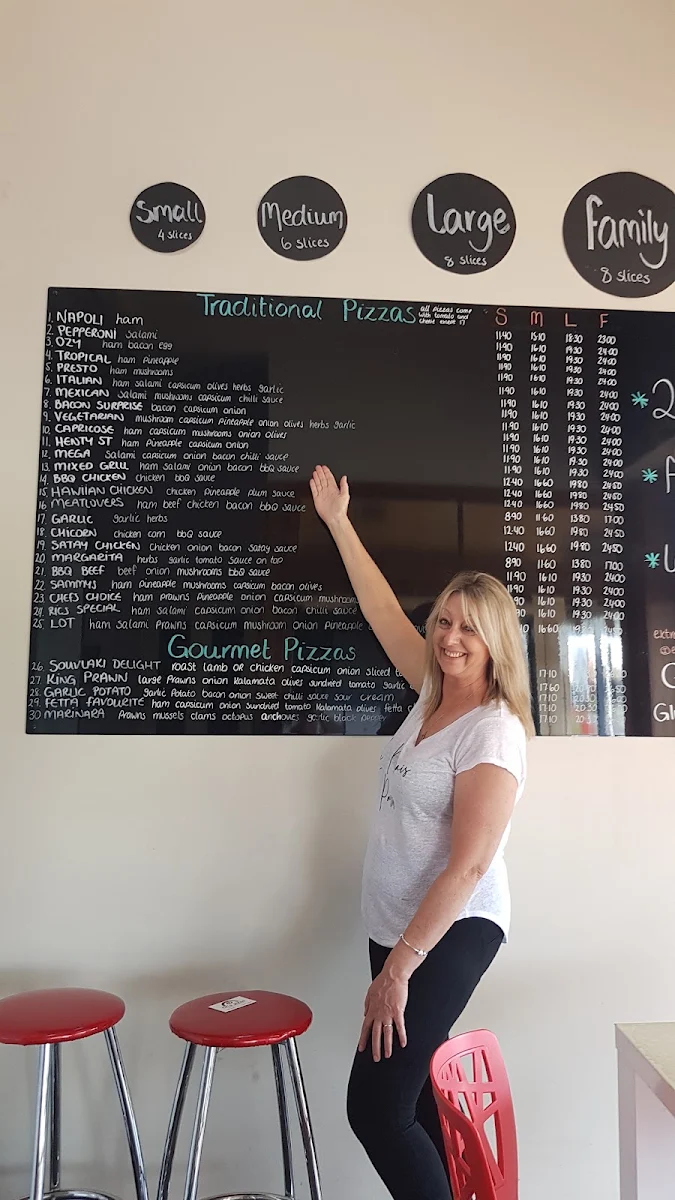 Small
4 slices
Medium
6 slices
Large
8 slices
Family
8 slices
Traditional Pizzas all pizzas come with tomato and cheese except 17 S M L F
1. NAPOLI ham 11·40 15·10 18·30 23·00
2. PEPPERONI salami 11·90 16·10 19·30 24·00
3. OZY ham bacon egg 11·90 16·10 19·30 24·00
4. TROPICAL ham pineapple 11·90 16·10 19·30 24·00
5. PRESTO ham mushrooms 11·90 16·10 19·30 24·00
6. ITALIAN ham salami capsicum olives herbs garlic 11·90 16·10 19·30 24·00
7. MEXICAN salami mushrooms capsicum chilli sauce 11·90 16·10 19·30 24·00
8. BACON SURPRISE bacon capsicum onion 11·90 16·10 19·30 24·00
9. VEGETARIAN mushroom capsicum pineapple onion olives herbs garlic 11·90 16·10 19·30 24·00
10. CAPRICOSE ham capsicum mushrooms onion olives 11·90 16·10 19·30 24·00
11. HENTY ST ham pineapple capsicum onion 11·90 16·10 19·30 24·00
12. MEGA salami capsicum onion bacon chilli sauce 11·90 16·10 19·30 24·00
13. MIXED GRILL ham salami onion bacon bbQ sauce 11·90 16·10 19·30 24·00
14. BBQ CHICKEN chicken bbQ sauce 12·40 16·60 19·80 24·50
15. HAWIIAN CHICKEN chicken pineapple plum sauce 12·40 16·60 19·80 24·50
16 MEATLOVERS ham beef chicken bacon bbQ sauce 12·40 16·60 19·80 24·50
17. GARLIC garlic herbs 8·90 11·60 13·80 17·00
18. CHICORN chicken corn bbQ sauce 12·40 16·60 19·80 24·50
19. SATAY CHICKEN chicken onion bacon satay sauce 12·40 16·60 19·80 24·50
20. MARGARITA herbs garlic tomato sauce on top 8·90 11·60 13·80 17·00
21. BBQ BEEF beef onion mushrooms bbQ sauce 11·90 16·10 19·30 24·00
22 SAMMYS ham pineapple mushrooms capsicum bacon olives 16·10 19·30 24·00
23 CHEFS CHOICE ham prawns pineapple onion capsicum mushrooms 16·10 19·30 24·00
24. RICS SPECIAL ham salami capsicum onion bacon chilli sauce 16·10 19·30 24·00
25. LOT ham salami prawns capsicum mushroom onion pineapple 16·60
Gourmet Pizzas
26. SOUVLAKI DELIGHT roast lamb or chicken capsicum onion sliced 17·10
27 KING PRAWN large prawns onion kalamata olives sundried tomato garlic 17·60
28. GARLIC POTATO garlic potato bacon onion sweet chilli sauce sour cream 17·10
29. FETTA FAVOURITE ham capsicum onion sundried tomato kalamata olives fetta 17·10
30 MARINARA prawns mussels clams octopus anchovies garlic black pepper 17·10